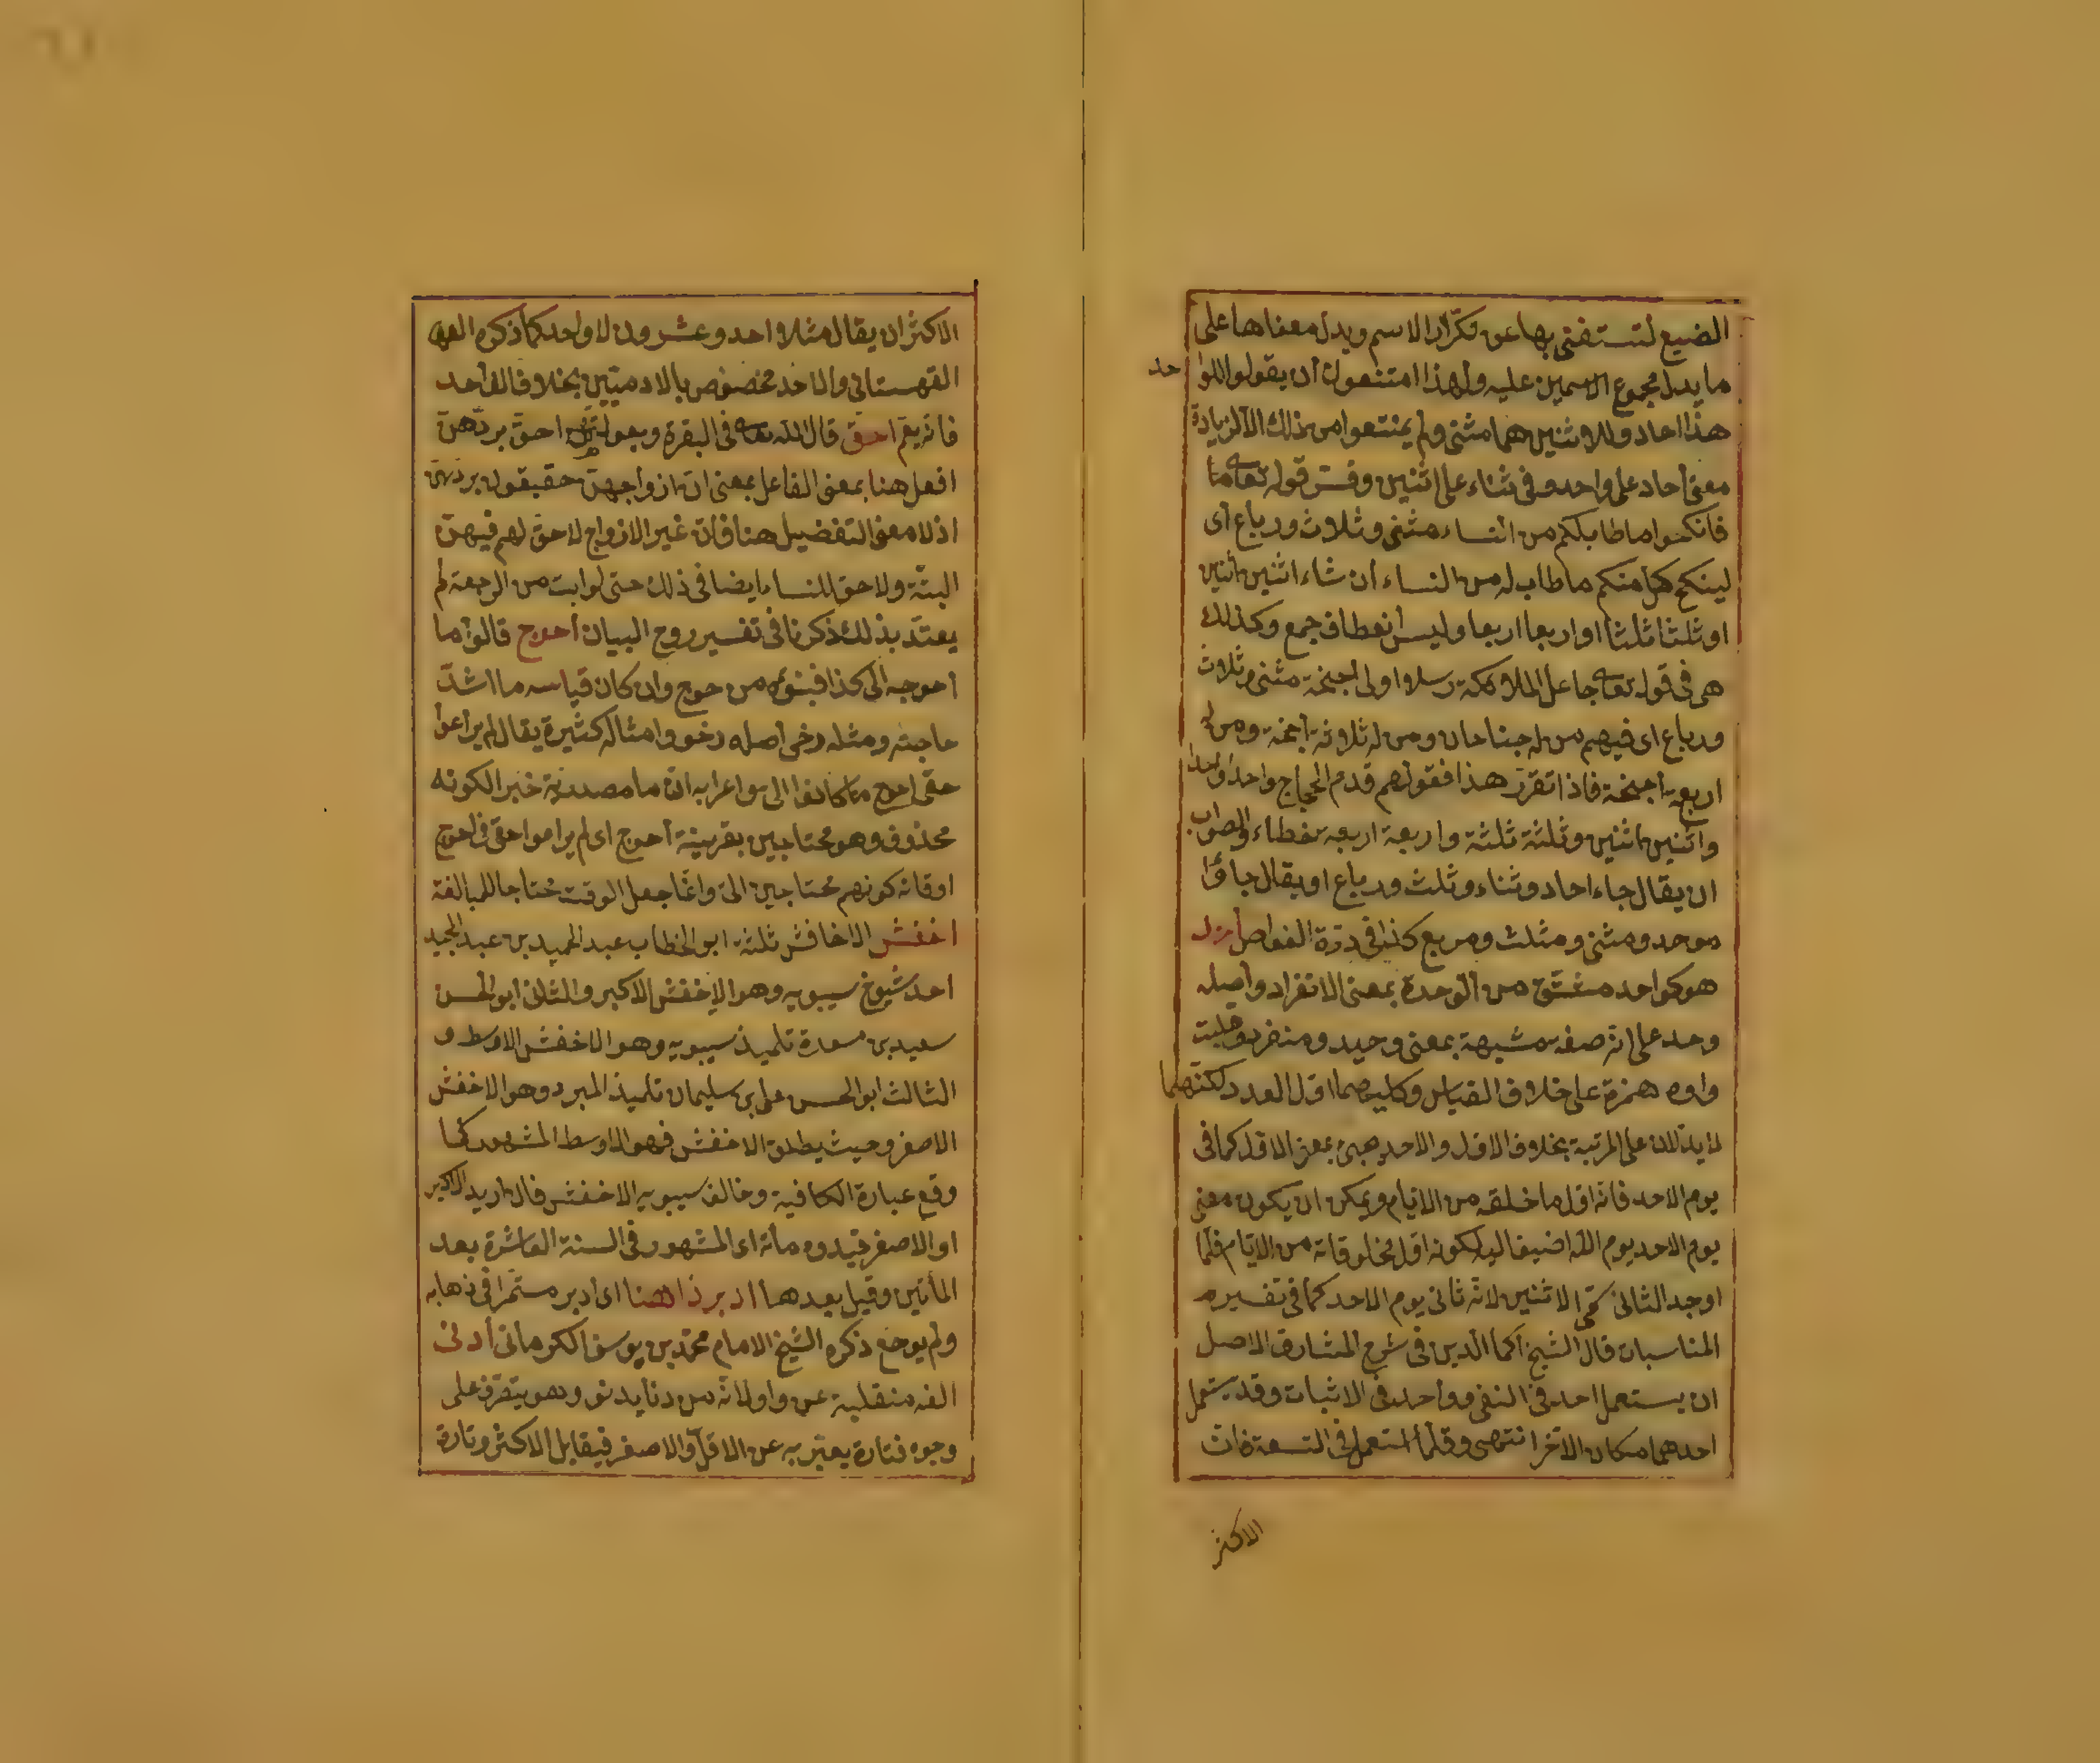 الصيغ لتستغنى بها عن تكرار الاسم ويدل معناها على
ما يدل مجموع الاسمين عليه ولهذا امتنعوا ان يقولوا للوا
حد
هذا احاد وللاثنين هما مثنى ولم يمتنعوا من ذلك الا لزيادة
معنى احاد على واحد وفى ثناء على اثنين وفسر قوله تعالى
فانكحوا ما طاب لكم من النساء مثنى وثلاث ورباع اى
لينكح كل منكم ما طاب له من النساء ان شاء اثنين اثنين
او ثلثا ثلثا او اربعا اربعا وليس انعطاف جمع وكذلك
هى فى قوله تعالى جاعل الملائكة رسلا اولى اجنحة مثنى وثلاث
ورباع اى فيهم من له جناحان ومن له ثلاثة اجنحة ومن له
اربعة اجنحة فاذا تقرر هذا فقولهم قدم الحجاج واحدا واحدا
واثنين اثنين وثلثة ثلثة واربعة اربعة خطاء والصواب
ان يقال جاء احاد وثناء وثلث ورباع او يقال جاؤا
موحد ومثنى ومثلث ومربع كذا فى درة الغواص
هو كواحد مشتق من الوحدة بمعنى الانفراد واصله
وحد على انه صفة مشبهة بمعنى وحيد ومنفرد وقلبت
واوه همزة على خلاف القياس وكليهما اول العدد لكنهما
لا يدلان على المرتبة بخلاف الاول والاحد يجئ بمعنى الاول كما فى
يوم الاحد فانه اول ما خلقه من الايام ويمكن ان يكون معنى
يوم الاحد يوم الله اضيف اليه لكونه اول مخلوقاته من الايام فلما
اوجد الثانى سمى الاثنين لانه ثانى يوم الاحد كما فى تفسير
المناسبات قال الشيخ اكمل الدين فى شرح المشارق الاصل
ان يستعمل احد فى النفى وواحد فى الاثبات وقد يستعمل
احدهما مكان الآخر انتهى وقلما استعمل فى التسعة فان
الاكثر
الاكثر ان يقال مثلا احد وعشرون لا واحد كما ذكره
القهستانى والاحد مخصوص بالآدميين بخلاف الواحد
فانه يعم احق قال الله تعالى فى البقرة وبعولتهن احق بردهن
افعل هنا بمعنى الفاعل بمعنى ان ازواجهن حقيقون بردهن
اذ لا معنى للتفضيل هنا فان غير الازواج لا حق لهم فيهن
البتة ولا حق للنساء ايضا فى ذلك حتى لو ابت من الرجعة لم
يعتد بذلك ذكرنا فى تفسير روح البيان احوج قالوا ما
احوجه الى كذا فبنوه من حوج وان كان قياسه ما اشد
حاجته ومثله رخى اصله رخو وامثاله كثيرة يقال لم يراعوا
حقى احوج ما كانوا الى اعرابه ان ما مصدرية خبر الكونه
محذوف وهو محتاجين بقرينة احوج اى لم يراعوا حقى فى احوج
اوقاته كونهم محتاجين الى وانما جعل الوقت محتاجا للمبالغة
اخفش الاخافش ثلثة ابو الخطاب عبد الحميد بن عبد المجيد
احد شيوخ سيبويه وهو الاخفش الاكبر والثانى ابو الحسن
سعيد بن مسعدة تلميذ سيبويه وهو الاخفش الاوسط و
الثالث ابو الحسن على بن سليمان تلميذ المبرد وهو الاخفش
الاصغر وحيث يطلق الاخفش فهو الاوسط المشهور كما
وقع عبارة الكافية وخالف سيبويه الاخفش فان اريد الاكبر
او الاصغر قيدوه مات اى المشهور فى السنة العاشرة بعد
المأتين وقيل بعدها ادبر ذاهنا اى ادبر مستمرا فى ذهابه
ولم يرجع ذكره الشيخ الامام محمد بن يوسف الكرمانى ادنى
الفه منقلبة عن واو لانه من دنا يدنو وهو يتصرف على
وجوه فتارة يعبر به عن الاقل والاصغر فيقابل الاكثر وتارة